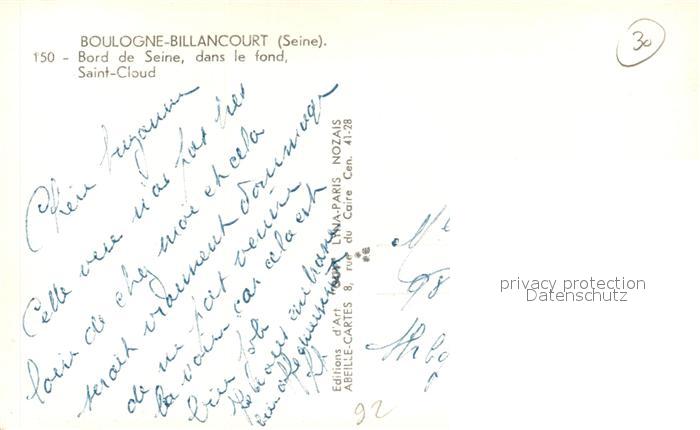 BOULOGNE-BILLANCOURT (Seine).
150 - Bord de Seine, dans le fond,
Saint-Cloud
30
Suzanne
Cette vue n'as pas très
loin de chez moi et cela
serait vraiment dommage
de ne pas venir
la voir car cela est
bien joli
Je vous embrasse
bien affectueusement
Editions d'Art LYNA-PARIS NOZAIS
ABEILLE-CARTES 8, rue du Caire Cen. 41-28
98
92
privacy protection
Datenschutz